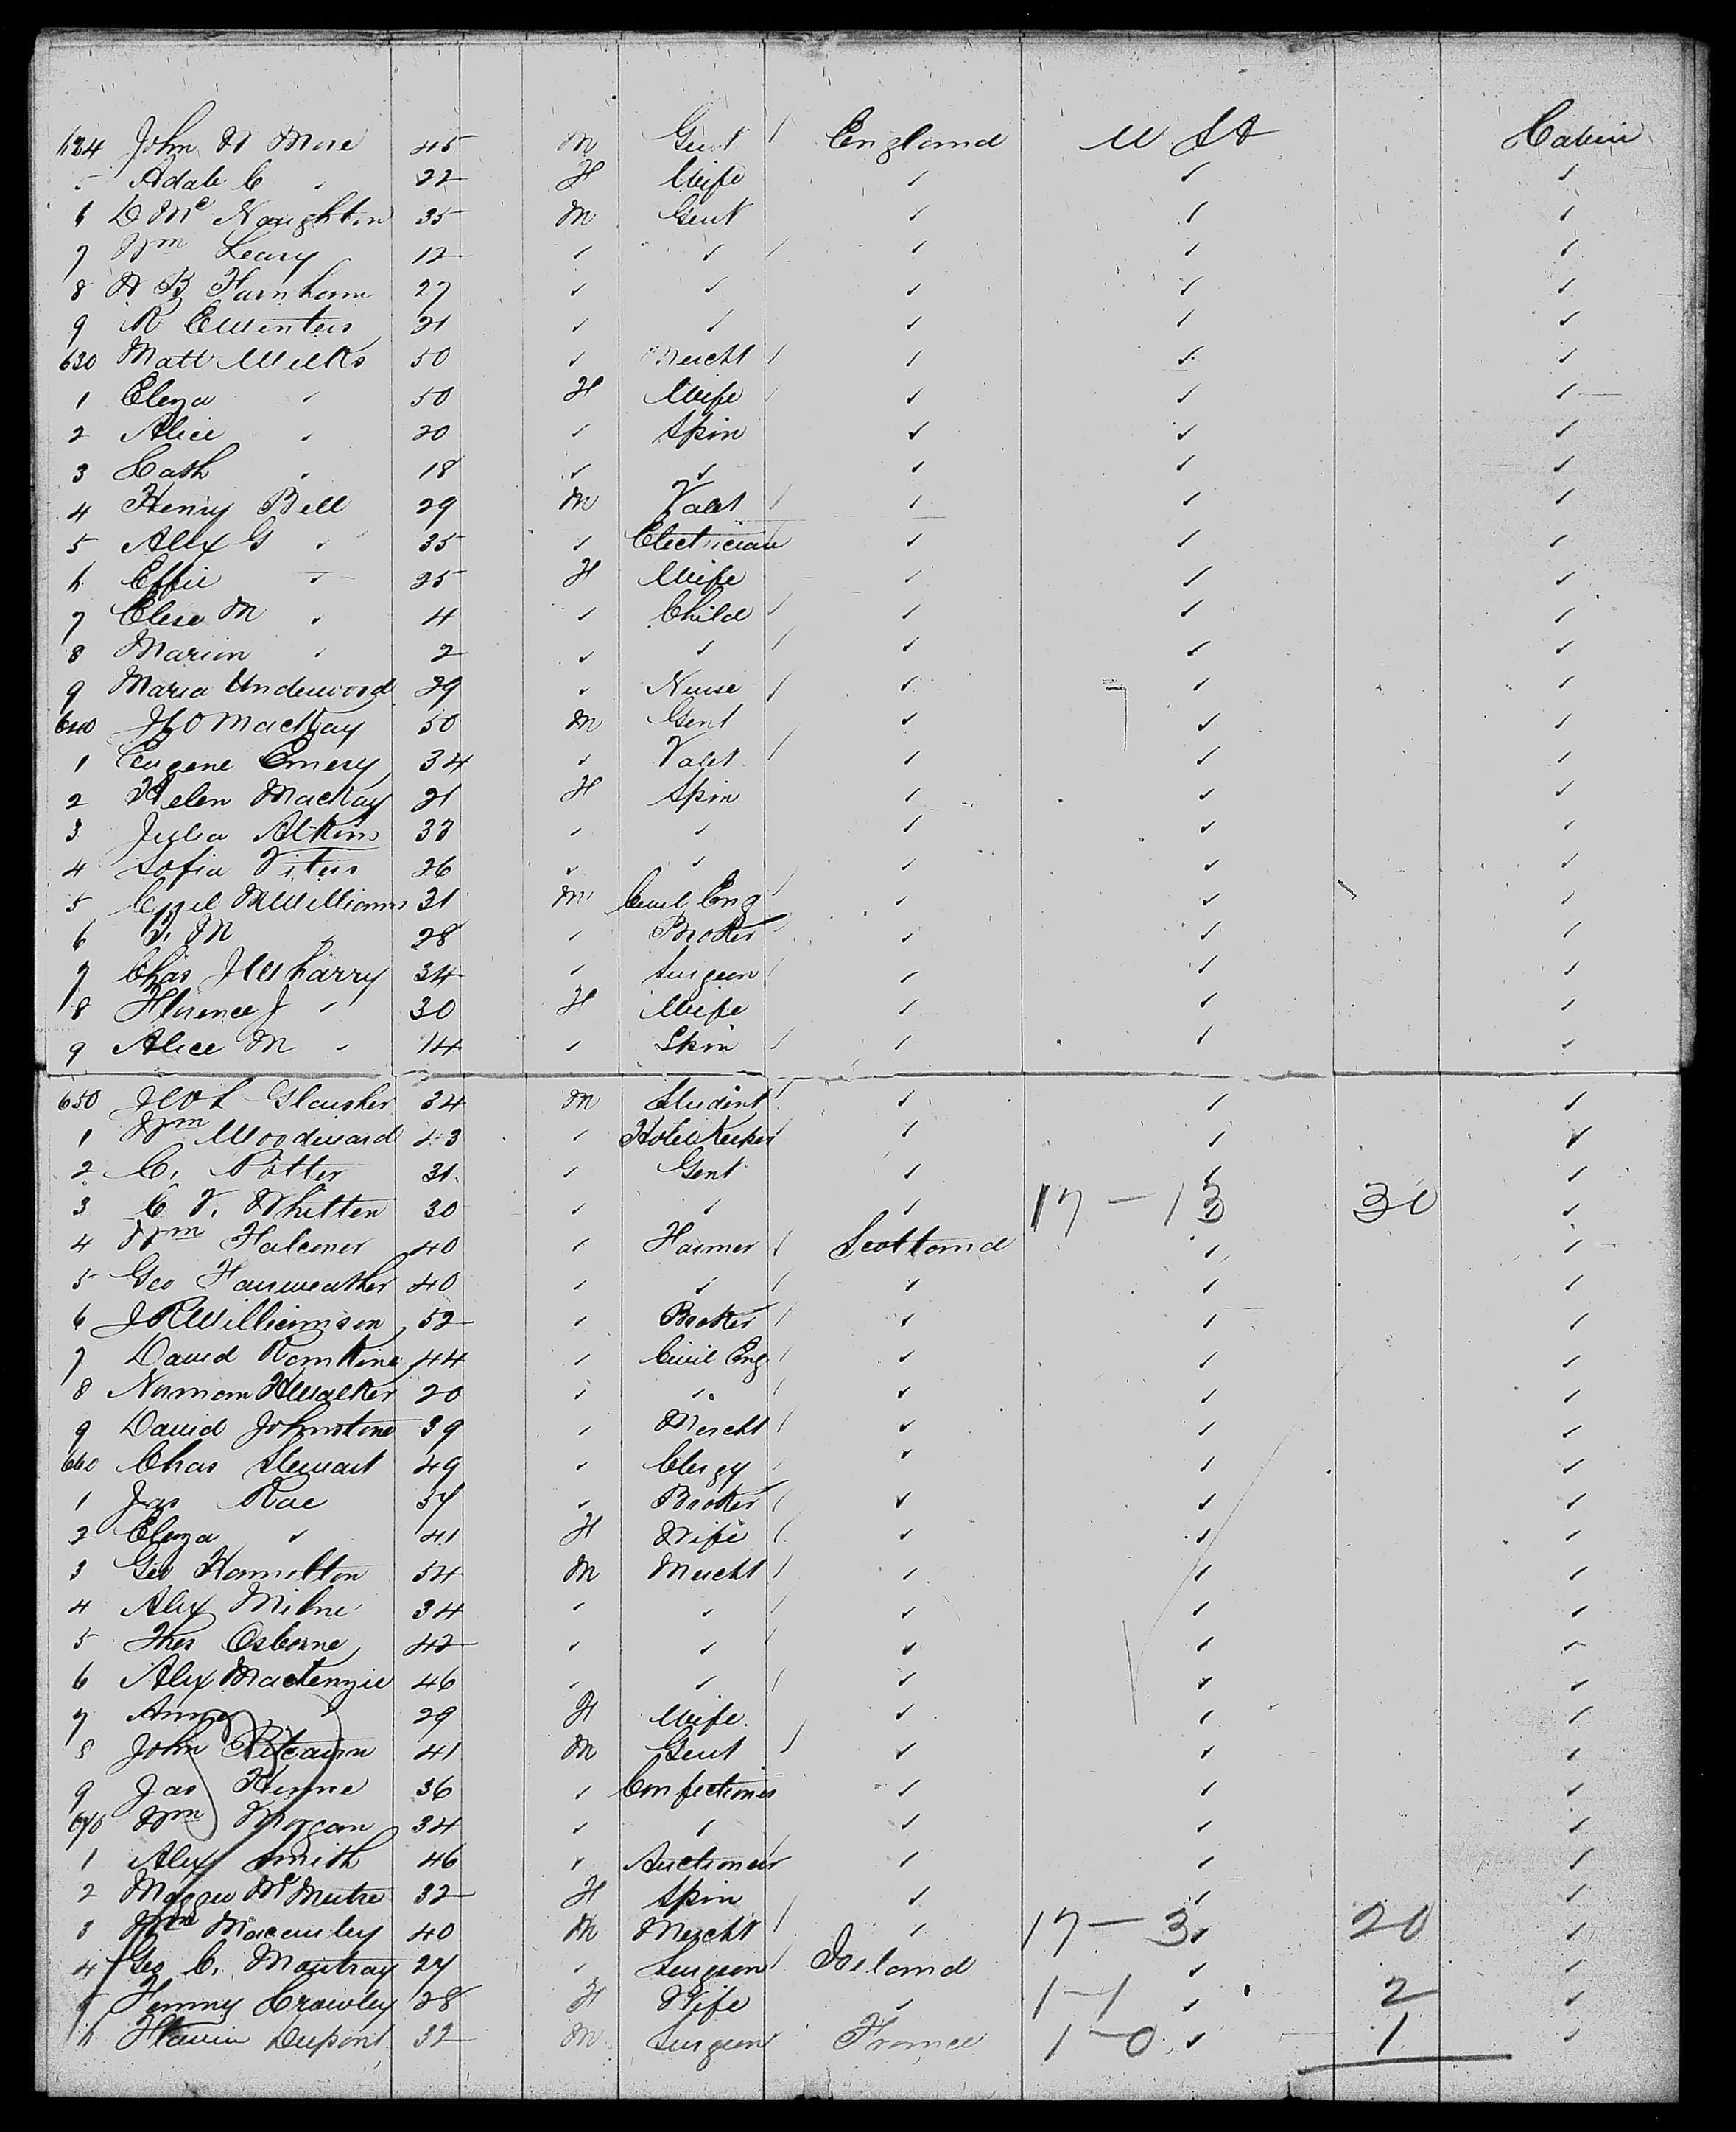 624 John W More 45 M Gent / England U St Cabin
5 Adale C " 22 F Wife " " "
6 D Mc Naughton 35 M Gent " " "
7 Wm Leary 12 " " / " " "
8 W B Farnham 27 " " " " "
9 R E Winters 21 " " " " "
630 Matt Wilks 50 " Mercht / " " "
1 Eliza " 50 F Wife " " "
2 Alice " 20 " Spin " " "
3 Cath " 18 " " " " "
4 Henry Bell 29 M Valet / " " "
5 Alex G " 35 " Electrician " " "
6 Effie " 25 F Wife " " "
7 Elise M " 4 " Child / " " "
8 Marion " 2 " " / " " "
9 Maria Underwood 29 " Nurse / " " "
640 MacKay 50 M Gent " " "
1 Eugene Emery 34 " Valet / " " "
2 Helen MacKay 21 F Spin " " "
3 Julia Atkins 33 " " " " "
4 Sofia 26 " " " " "
5 M Williams 31 M Civil Eng / " " "
6 M " 28 " Broker / " " "
7 Chas J Wharry 34 " Surgeon / " " "
8 Florence J " 30 F Wife " " "
9 Alice M " 14 " Spin / " " "
650 34 M Student / " " "
1 Wm Woodward 43 " Hotel Keeper / " " "
2 C. Potter 31 " Gent " " "
3 C V. Whitten 30 " " " 17 – 13 30 "
4 Wm Falconer 40 " Farmer / Scotland " "
5 Geo Fairweather 40 " " / " " "
6 J R Williamson 52 " Broker / " " "
7 David Rankine 44 " Civil Eng / " " "
8 Norman H Walker 20 " " / " " "
9 David Johnstone 39 " Mercht / " " "
660 Chas Stewart 49 " Clergy / " " "
1 Jas Rae 37 " Broker / " " "
2 Eliza " 41 F Wife / " " "
3 Geo Hamilton 54 M Mercht / " " "
4 Alex Milne 34 " " / " " "
5 Thos Osborne 42 " " / " " "
6 Alex Mackenzie 46 " " / " " "
7 Anna " 29 F Wife " " "
8 John Pitcairn 41 M Gent / " " "
9 Jas 36 " Confectioner " " "
670 Wm Morgan 34 " " " " "
1 Alex Smith 46 " Auctioneer " " "
2 Maggie 32 F Spin / " " "
3 Wm Macauley 40 M Mercht / " 17 – 3 " 20 "
4 Geo C. 27 " Surgeon / Ireland " "
5 Fanny Crowley 28 F Wife " 1 – 1 " 2 "
6 Dupont 32 M Surgeon France 1 – 0 " 1 "